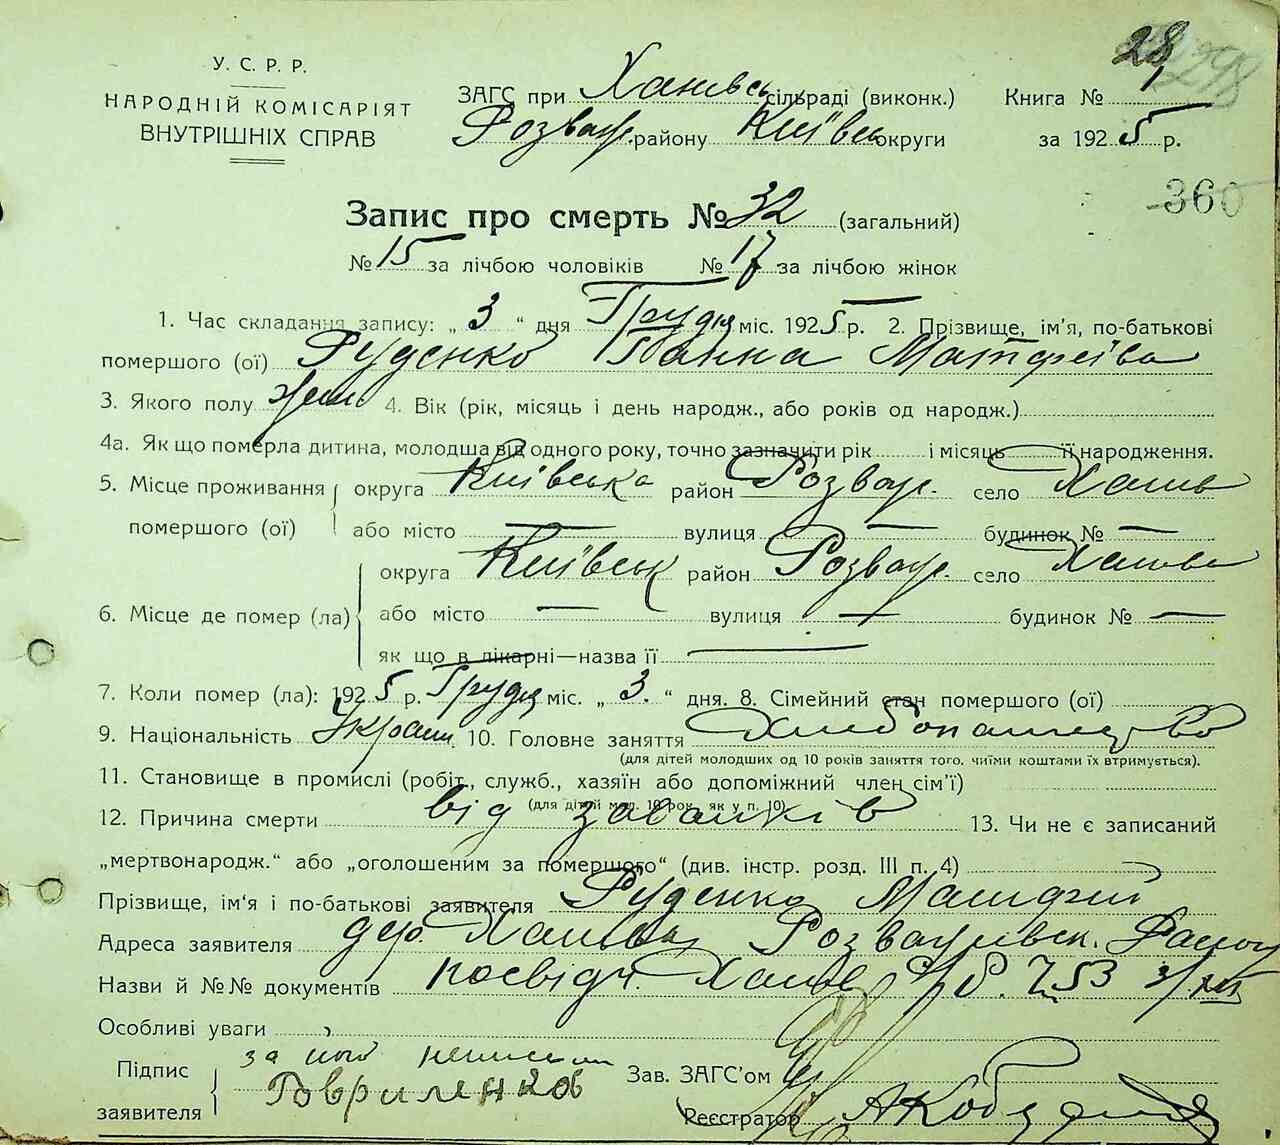 28
298
У. С. Р. Р.
НАРОДНІЙ КОМІСАРІЯТ
ВНУТРІШНІХ СПРАВ
ЗАГС при Ханівсь сільраді (виконк.) Книга №
Розваж. району Київсь округи за 1925 р.
360
Запис про смерть № 32 (загальний)
№ 15 за лічбою чоловіків № 17 за лічбою жінок
1. Час складання запису: „ 3 “ дня Грудня міс. 1925 р. 2. Прізвище, ім’я, по-батькові
помершого (ої) Руденко Ганна Матфеїва
3. Якого полу жен 4. Вік (рік, місяць і день народж., або років од народж.)
4а. Як що померла дитина, молодша від одного року, точно зазначити рік і місяць її народження.
5. Місце проживання округа Київська район Розваж. село Ханів
помершого (ої) або місто — вулиця — будинок № —
округа Київськ район Розваж. село Ханева
6. Місце де помер (ла) або місто — вулиця — будинок № —
як що в лікарні—назва її —
7. Коли помер (ла): 1925 р. Грудня міс. „ 3. “ дня. 8. Сімейний стан помершого (ої)
9. Національність Украин. 10. Головне заняття Хлібопашество
(для дітей молодших од 10 років заняття того, чиїми коштами їх втримується).
11. Становище в промислі (робіт., служб., хазяїн або допоміжний член сім’ї)
(для дітей мол. 10 рок. як у п. 10).
12. Причина смерти від 13. Чи не є записаний
„мертвонародж.“ або „оголошеним за помершого“ (див. інстр. розд. III п. 4)
Прізвище, ім’я і по-батькові заявителя Руденко Матфій
Адреса заявителя дер. Ханева Розважівськ. Району
Назви й №№ документів посвідч. Ханев С/Р. 753 3/XII
Особливі уваги
Підпис за його
заявителя Говриленков
Зав. ЗАГС’ом
Реєстратор